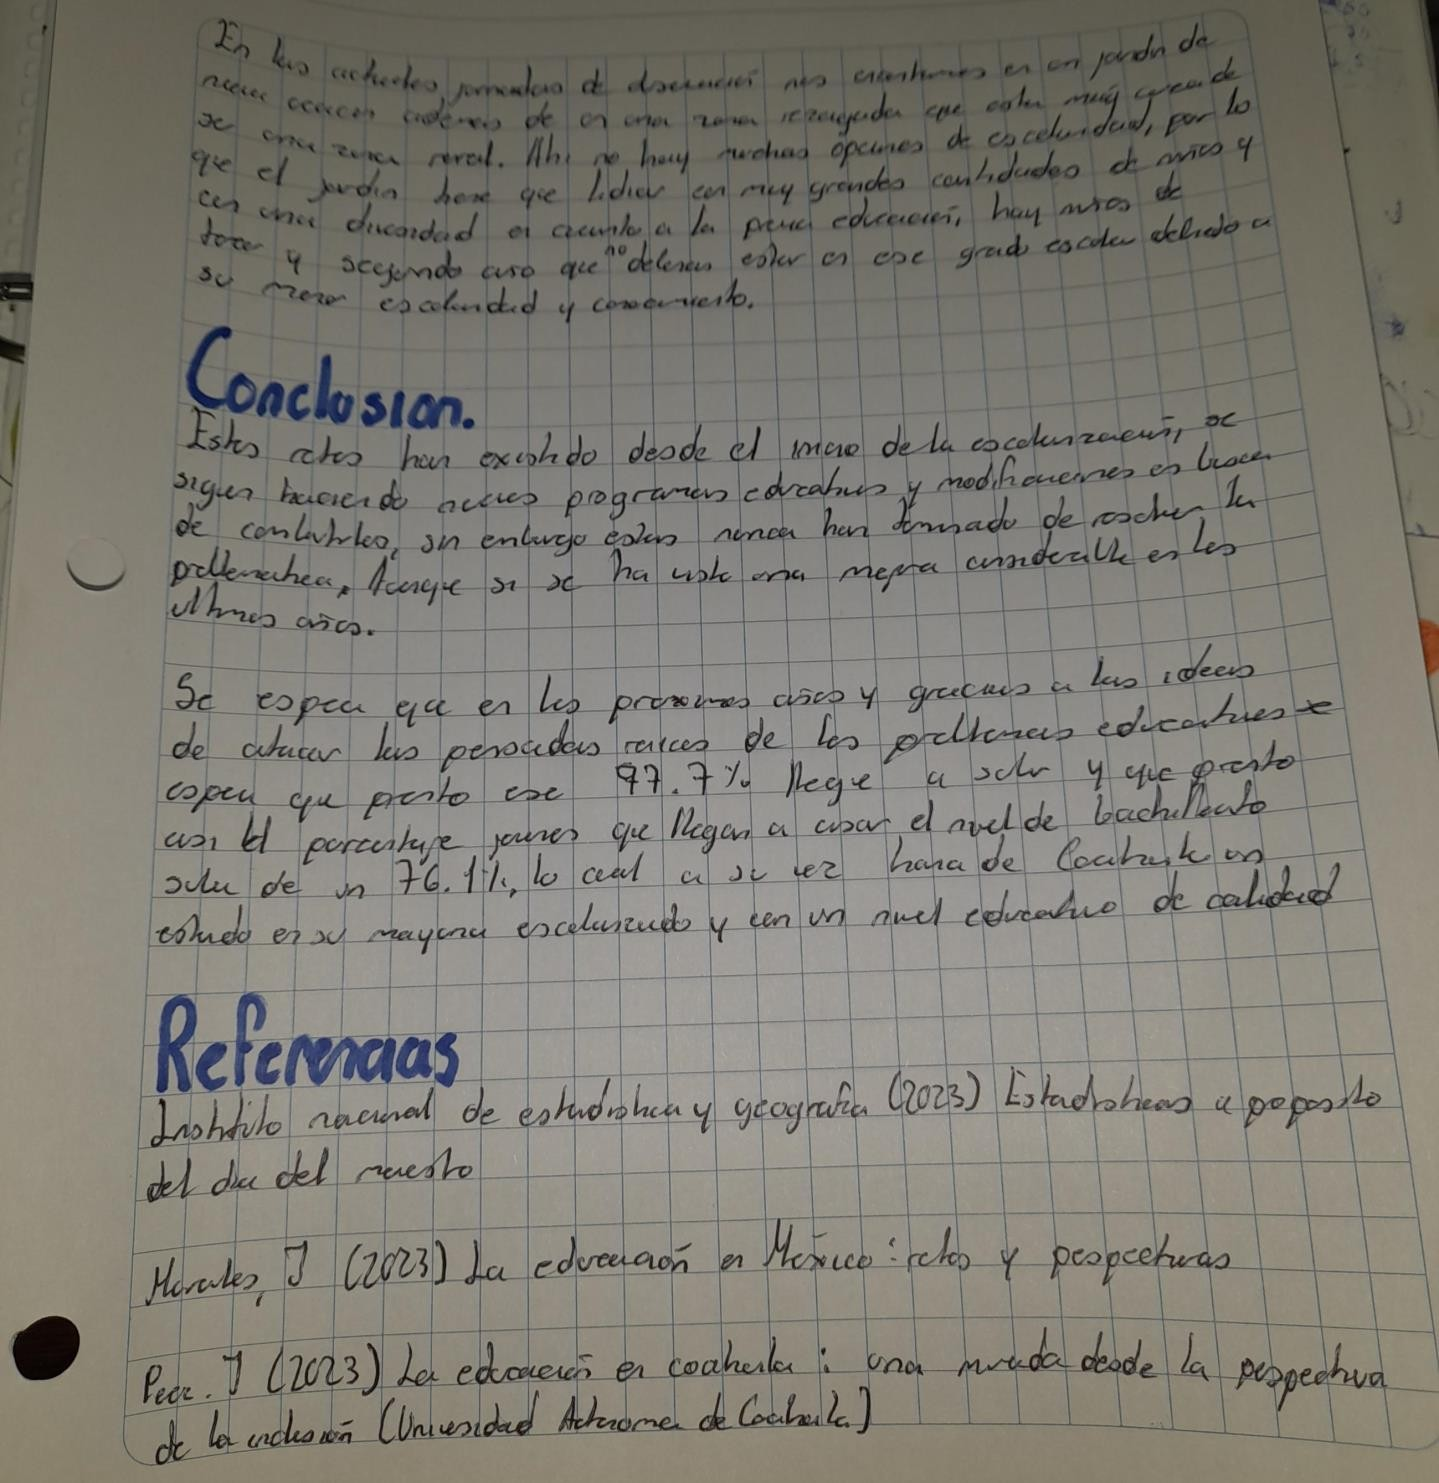 En las actuales jornadas de observación nos encontramos en un jardin de
nueva creacion además de en una zona rezagada que esta muy cerca de
se una zona rural. Ahi no hay muchas opciones de escolaridad, por lo
que el jardin tiene que lidiar con muy grandes cantidades de niños y
con una diversidad en cuanto a la previa educación, hay niños de
tercer y segundo año que no deberian estar en ese grado escolar debido a
su menor escolaridad y conocimiento.
Conclusion.
Estos retos han existido desde el inicio de la escolarización, se
siguen haciendo nuevos programas educativos y modificaciones en busca
de combatirlos, sin embargo estas nunca han terminado de resolver la
problematica. Aunque si se ha visto una mejora considerable en los
ultimos años.
Se espera que en los proximos años y gracias a las ideas
de atacar las pesadas raices de los problemas educativos se
espera que pronto ese 97.7% llegue a subir y que pronto
asi el porcentaje jovenes que llegan a cursar el nivel de bachillerato
suba de un 76.1%, lo cual a su vez hara de Coahuila un
estado en su mayoria escolarizado y con un nivel educativo de calidad
Referencias
Instituto nacional de estadistica y geografia (2023) Estadisticas a proposito
del dia del maestro
Morales, J (2023) La educación en México: retos y perspectivas
Perez. J (2023) La educación en coahuila: una mirada desde la perspectiva
de la inclusión (Universidad Autonoma de Coahuila)